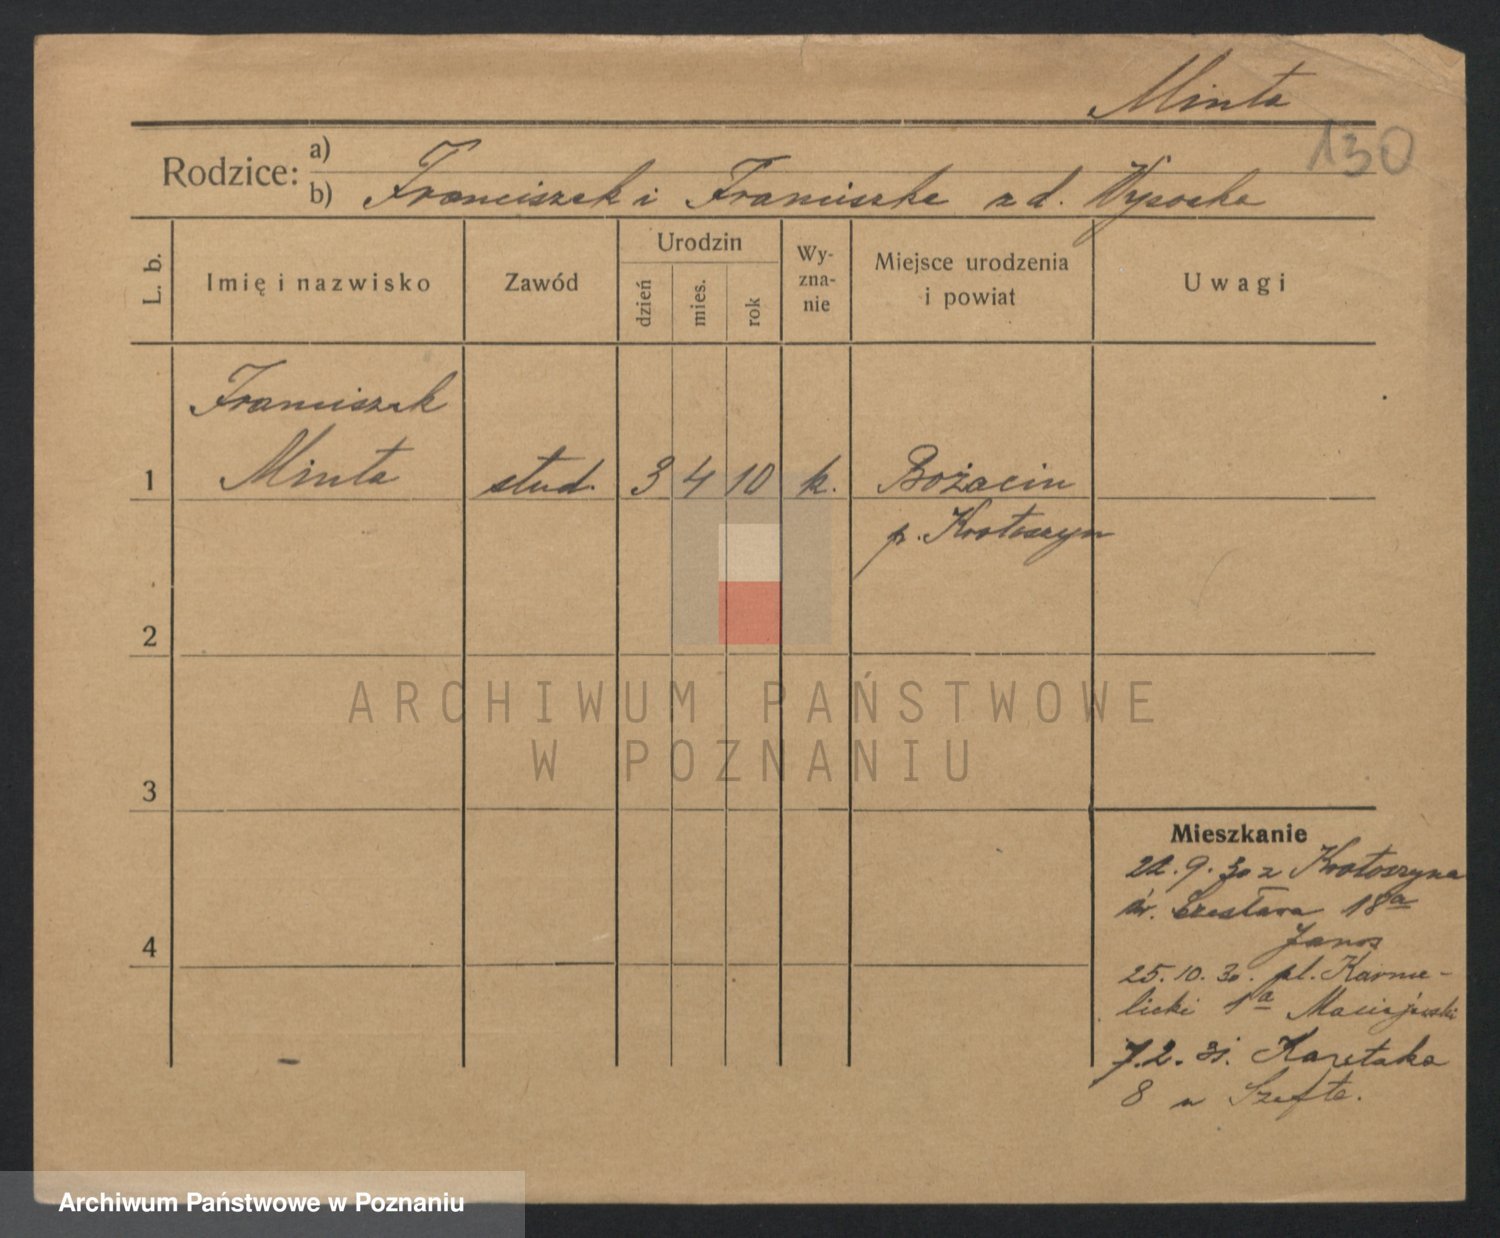 Minta
130
Rodzice: a)
b) Franciszek i Franciszka z d. Wysocka
L. b. Imię i nazwisko Zawód Urodzin dzień mies. rok Wy- zna- nie Miejsce urodzenia i powiat Uwagi
Franciszek
1 Minta stud. 3 4 10 k. Bożacin
p. Krotoszyn
2
ARCHIWUM PAŃSTWOWE
W POZNANIU
3
Mieszkanie
22. 9. 30 z Krotoszyna
św. Czesława 18a
Janos
4
25. 10. 30. pl. Karme-
licki 1a Maciejewski
7. 2. 31.
8 u Szefte.
Archiwum Państwowe w Poznaniu